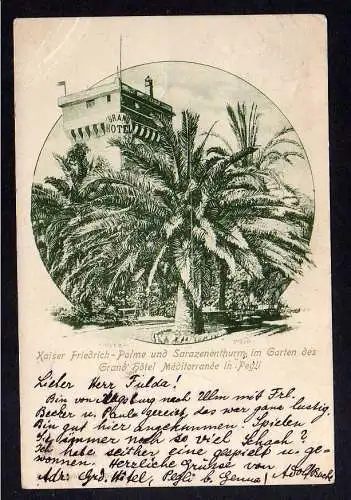 GRAND
HOTEL
Kaiser Friedrich-Palme und Sarazenenthurm im Garten des
Grand Hôtel Méditerranée in Pegli
Lieber Herr Fulda!
Bin von Augsburg nach Ulm mit Frl.
Becker u. Paula gereist das war ganz lustig.
Bin gut hier angekommen. Spielen
Sie immer noch so viel Schach?
Ich habe seither eine gespielt u. ge-
wonnen. Herzliche Grüsse von
Adr. Grd. Hôtel, Pegli b. Genua, Adolf